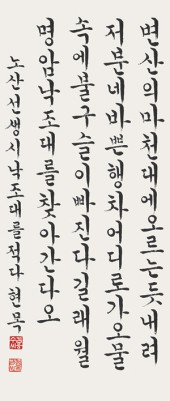 변산의마천대에오르는듯내려
저분네바쁜행차어디로가오물
속에불구슬이빠진다길래월
명암낙조대를찾아간다오
노산선생시낙조대를적다현목